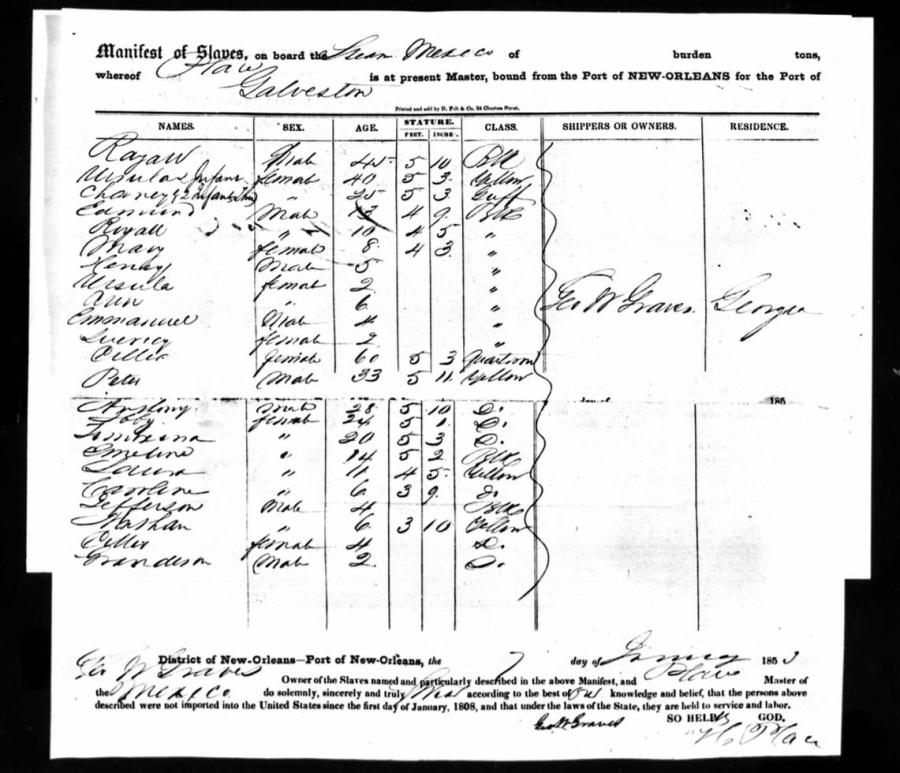 Manifest of Slaves, on board the Steam Mexico of burden tons,
whereof Place is at present Master, bound from the Port of NEW-ORLEANS for the Port of
Galveston
Printed and sold by D. Felt & Co. 24 Chartres Street.
NAMES. SEX. AGE. STATURE. CLASS. SHIPPERS OR OWNERS. RESIDENCE.
FEET. INCHS.
Male 45 5 10 Blk
Ursula & Infant female 40 5 3 Yellow
Chaney & 2 Infants " 25 5 3
Edmund Male 4 9 Blk
Royall " 10 4 5 "
Mary female 8 4 3 "
Henry Male 5 "
Ursula female 2 "
Ann " 6 "
Emmanuel Male 4 " Geo W Graves. Georgia
female 2 "
Cillia female 60 5 3 Quartroon
Peter Male 33 5 11 Yellow
day of 185
Anthony Male 28 5 10 Do.
female 24 5 1 Do.
" 20 5 3 Do.
Emeline " 14 5 2 Blk
Laura " 11 4 5 Yellow
Caroline " 6 3 9 Do.
Jefferson Male 4 Blk
Nathan " 6 3 10 Yellow
female 4 Do.
Grandison Male 2 Do.
District of New-Orleans—Port of New-Orleans, the 7 day of January 1853
Geo W Graves Owner of the Slaves named and particularly described in the above Manifest, and Place Master of
the Mexico do solemnly, sincerely and truly according to the best of our knowledge and belief, that the persons above
described were not imported into the United States since the first day of January, 1808, and that under the laws of the State, they are held to service and labor.
Geo W Graves SO HELP GOD,
H Place